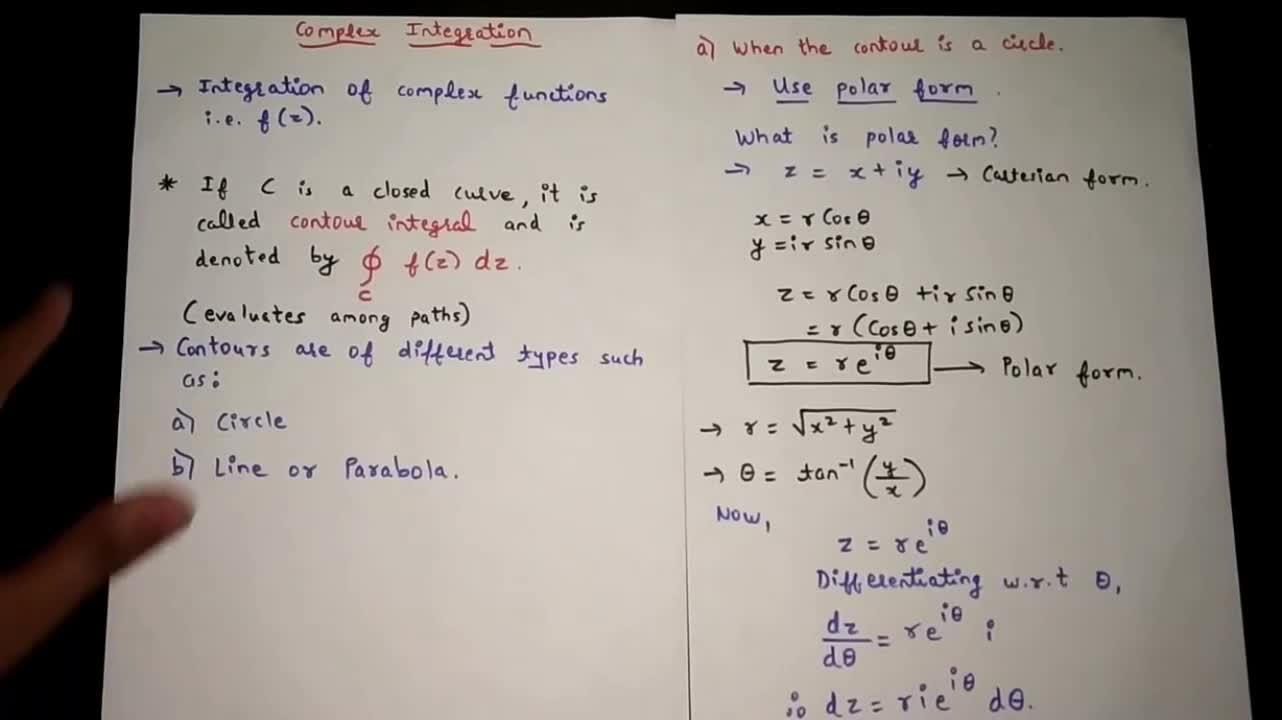 Complex Integration
→ Integration of complex functions
i.e. f(z).
* If C is a closed curve, it is
called contour integral and is
denoted by ∮_C f(z) dz.
(evaluates among paths)
→ Contours are of different types such
as:
a) Circle
b) Line or Parabola.
a) When the contour is a circle.
→ Use polar form.
What is polar form?
→ z = x + iy → Carterian form.
x = r Cos θ
y = ir sin θ
z = r Cos θ + ir Sin θ
= r (Cos θ + i sin θ)
z = re^{iθ} → Polar form.
→ r = √(x² + y²)
→ θ = tan⁻¹ (y/x)
Now,
z = re^{iθ}
Differentiating w.r.t θ,
dz/dθ = re^{iθ} i
∴ dz = rie^{iθ} dθ.